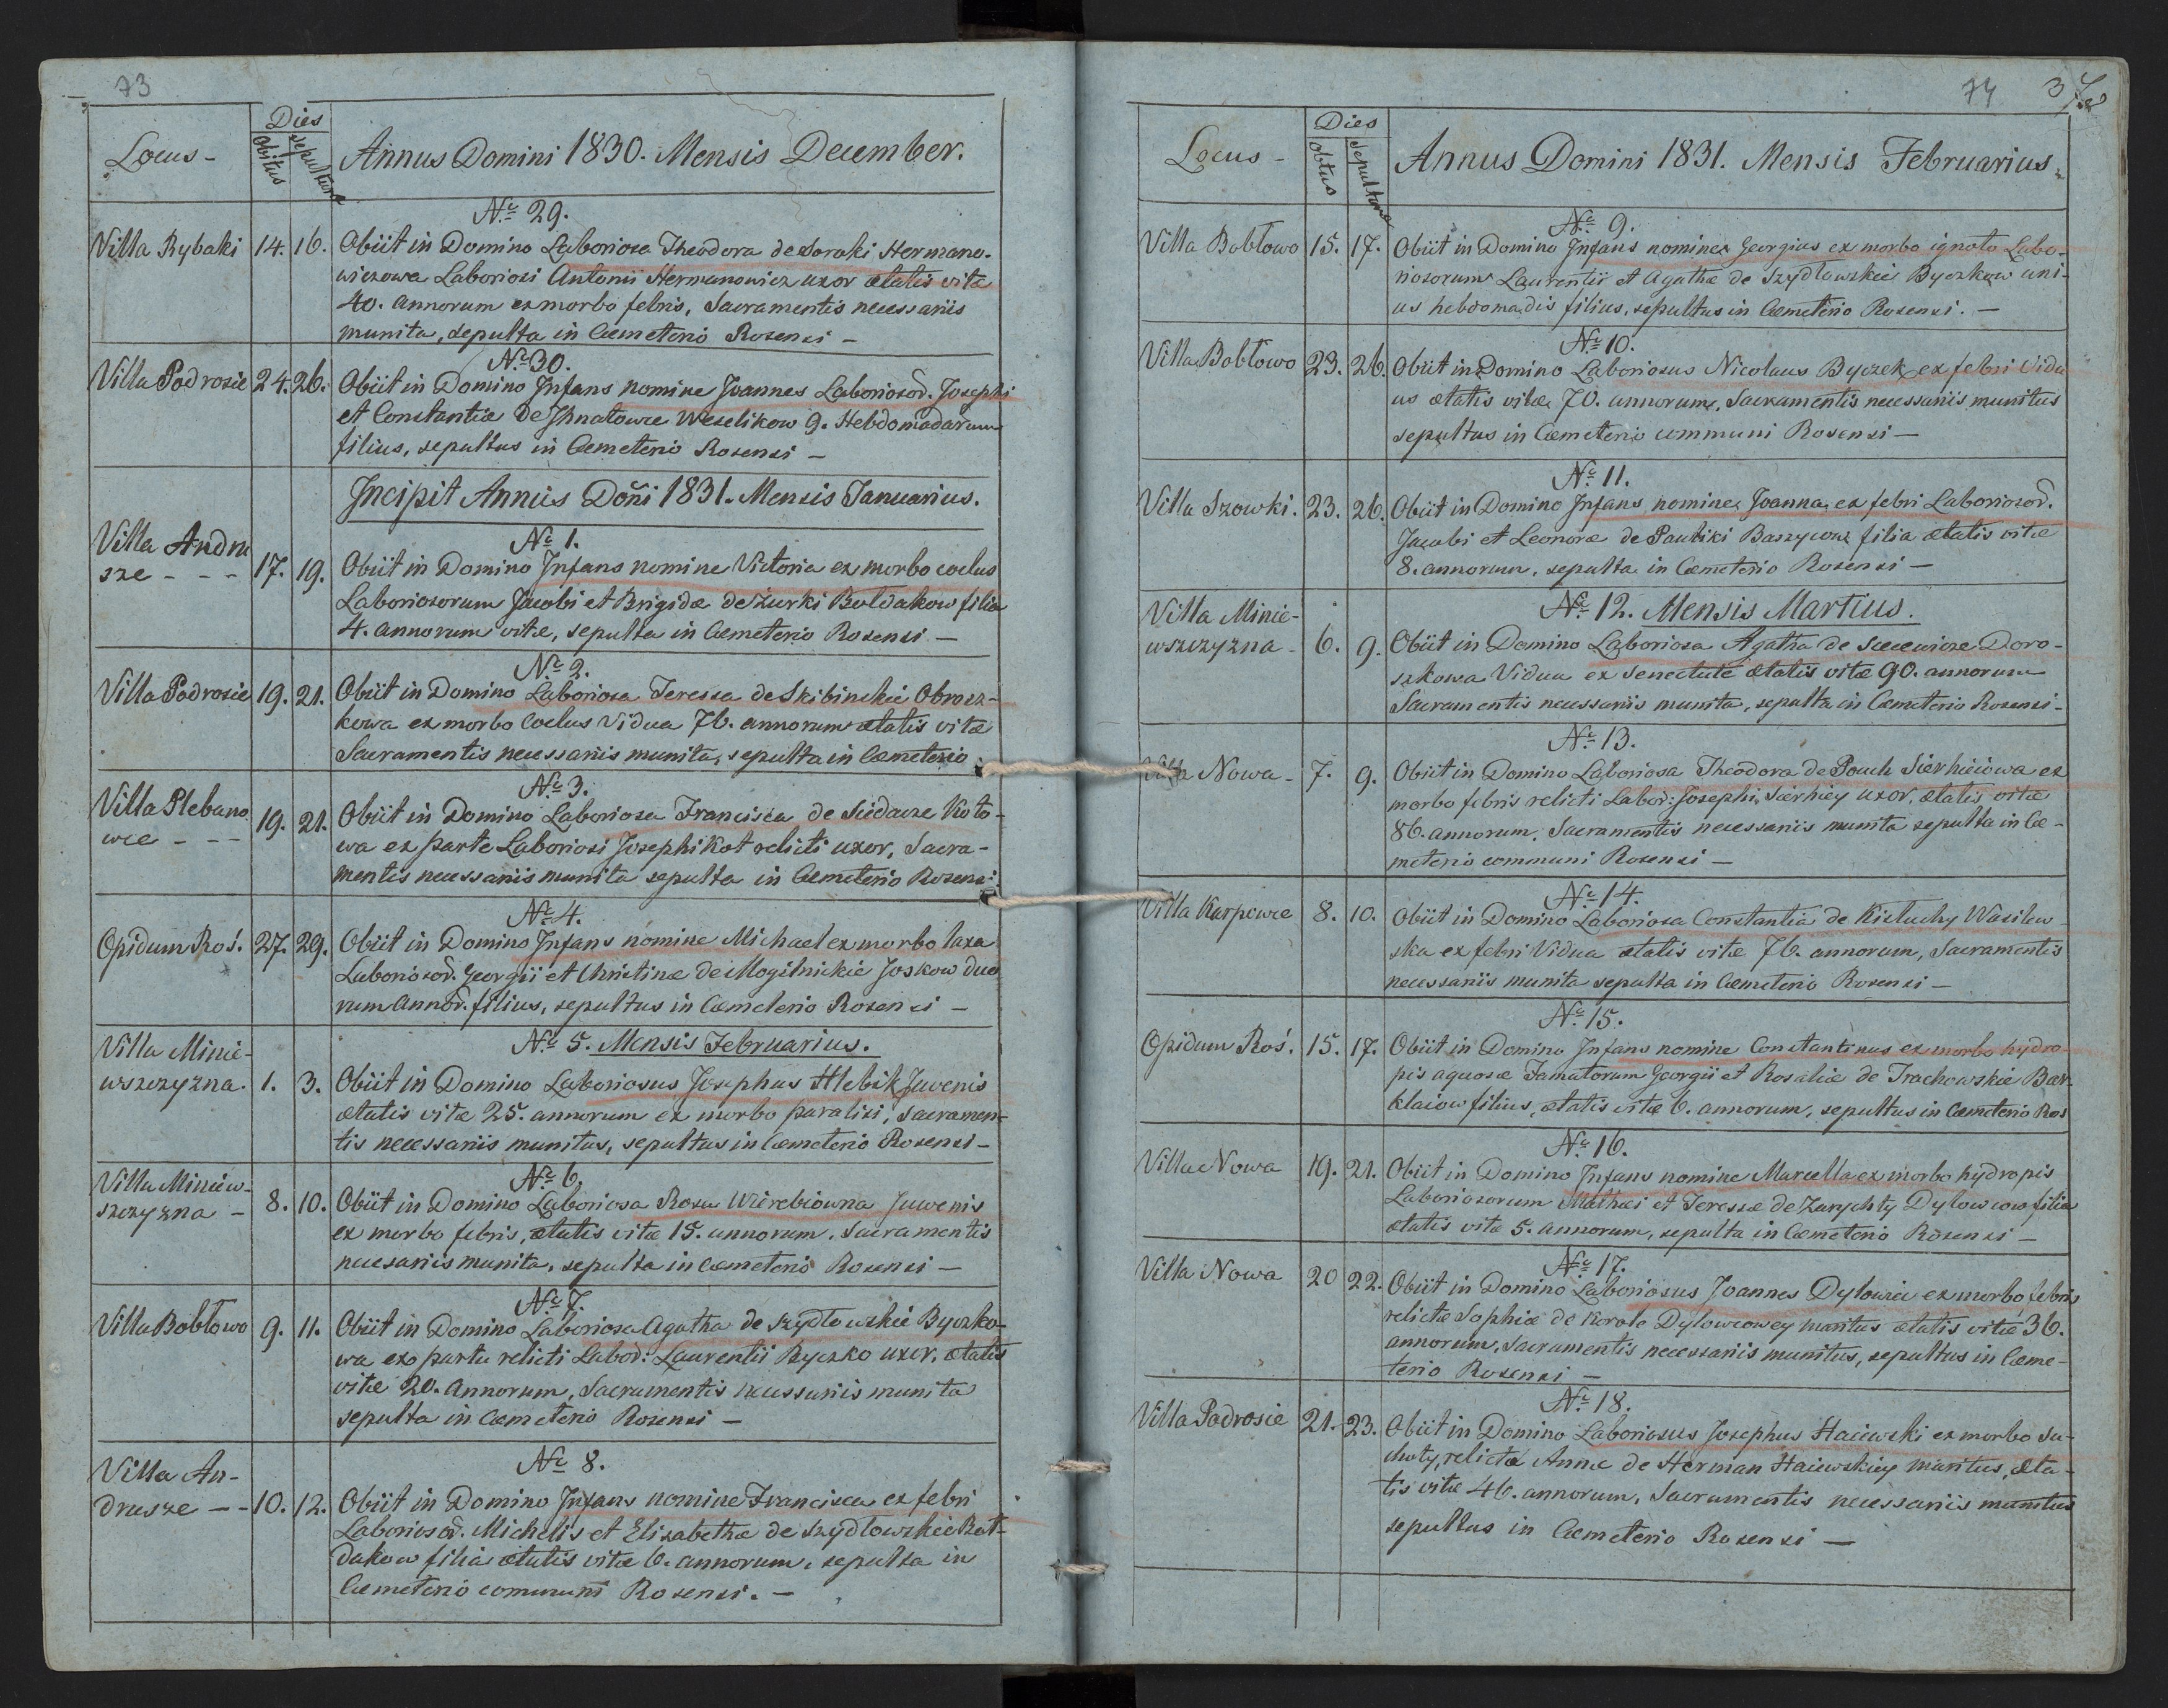 73
Locus -
Dies
obitus
sepultura
Annus Domini 1830. Mensis December.
Nº 29.
Villa Rybaki 14. 16. Obiit in Domino Laboriosa Theodora de Soroki Hermano-
wiczowa Laboriosi Antonii Hermanowicz uxor ætatis vitæ
40. annorum ex morbo febris, Sacramentis necessariis
munita, sepulta in Cæmeterio Rosensi —
Nº 30.
Villa Podrosie 24. 26. Obiit in Domino Infans nomine Joannes Laboriosor. Josephi
et Constantiæ de Ihnatowicz Weselikow 9. Hebdomadarum
filius, sepultus in Cæmeterio Rosensi —
Incipit Annus Doñi 1831. Mensis Januarius.
Nº 1.
Villa Andru
sze - - - 17. 19. Obiit in Domino Infans nomine Victoria ex morbo coelus
Laboriosorum Jacobi et Brigidæ de Żurki Boldakow filia
4. annorum vitæ, sepulta in Cæmeterio Rosensi —
Nº 2.
Villa Podrosie 19. 21. Obiit in Domino Laboriosa Teressa de Skibinskie Obrocz-
kowa ex morbo Coelus Vidua 76. annorum ætatis vitæ
Sacramentis necessariis munita, sepulta in Cæmeterio
Nº 3.
Villa Plebano
wce - - - 19. 21. Obiit in Domino Laboriosa Francisca de Siedacze Koto-
wa ex parte Laboriosi Josephi Kot relicti uxor, Sacra-
mentis necessariis munita sepulta in Cæmeterio Rosensi.
Nº 4.
Opidum Roś. 27. 29. Obiit in Domino Infans nomine Michael ex morbo laxa
Laboriosor. Georgii et Christinæ de Mogilnickie Joskow duo
rum Annor. filius, sepultus in Cæmeterio Rosensi —
Nº 5. Mensis Februarius.
Villa Minie-
wszczyzna. 1. 3. Obiit in Domino Laboriosus Josephus Hlebik Juvenis
ætatis vitæ 25. annorum ex morbo paralisi, Sacramen-
tis necessariis munitus, sepultus in Cæmeterio Rosensi —
Nº 6.
Villa Miniew-
szczyzna - 8. 10. Obiit in Domino Laboriosa Rosa Wierebiowna Juwenis
ex morbo febris, ætatis vitæ 15. annorum. Sacramentis
necesariis munita, sepulta in Cæmeterio Rosensi —
Nº 7.
Villa Bobłowo 9. 11. Obiit in Domino Laboriosa Agatha de Szydłowskie Byczko-
wa exo partu relicti Labor: Laurentii Byczko uxor, ætatis
vitæ 20. Annorum, Sacramentis necessariis munita
sepulta in Cæmeterio Rosensi —
Nº 8.
Villa An-
drusze - - 10. 12. Obiit in Domino Infans nomine Francisca ex febri
Laboriosor. Michelis et Elisabethæ de Szydłowskie Bol-
dakow filia ætatis vitæ 6. annorum, sepulta in
Cæmeterio communi Rosensi. —
74 37
Locus -
Dies
obtus
sepultura
Annus Domini 1831. Mensis Februarius.
Nº 9.
Villa Bobłowo 15. 17. Obiit in Domino Infans nomine Georgius ex morbo ignoto Labo-
riosorum Laurentii et Agathæ de Szydłowskie Byczkow uni-
us hebdomadis filius, sepultus in Cæmeterio Rosensi. —
Nº 10.
Villa Bobłowo 23. 26. Obiit in Domino Laboriosus Nicolaus Byczek ex febri Vidu
us ætatis vitæ 70. annorum, Sacramentis necessariis munitus
sepultus in Cæmeterio communi Rosensi —
Nº 11.
Villa Szowki. 23. 26. Obiit in Domino Infans nomine Joanna, ex febri Laboriosor.
Jacobi et Leonoræ de Pautiki Baszycow filia ætatis vitæ
8. annorum, sepulta in Cæmeterio Rosensi —
Nº 12. Mensis Martius.
Villa Minie-
wszczyzna - 6. 9. Obiit in Domino Laboriosa Agatha de Doro-
szkowa Vidua ex Senectute ætatis vitæ 90. annorum
Sacramentis necessariis munita, sepulta in Cæmeterio Rosensi -
Nº 13.
Villa Nowa - 7. 9. Obiit in Domino Laboriosa Theodora de Pouch Sierhieiowa ex
morbo febris relicti Labor: Josephi Sierhiey uxor, ætatis vitæ
86. annorum, Sacramentis necessariis munita sepulta in Cæ-
meterio communi Rosensi —
Nº 14.
Villa Karpowce 8. 10. Obiit in Domino Laboriosa Constantia de Kieluchy Wasilew-
ska ex febri Vidua ætatis vitæ 76. annorum, Sacramentis
necessariis munita sepulta in Cæmeterio Rosensi —
Nº 15.
Opidum Roś. 15. 17. Obiit in Domino Infans nomine Constantinus ex morbo hydro-
pis aquosæ Famatorum Georgii et Rosaliæ de Trachowskie Bar-
klaiow filius, ætatis vitæ 6. annorum, sepultus in Cæmeterio Ros
Nº 16.
Villa Nowa 19. 21. Obiit in Domino Infans nomine Marcella ex morbo hydropis
Laboriosorum Mathæi et Teressæ de Zurychty Dylowcow filia
ætatis vitæ 5. annorum, sepulta in Cæmeterio Rosensi —
Nº 17.
Villa Nowa 20 22. Obiit in Domino Laboriosus Joannes Dylowiec ex morbo febris
relictæ Sophiæ de Korole Dylowcowey maritus ætatis vitæ 36.
annorum, Sacramentis necessariis munitus, sepultus in Cæme-
terio Rosensi —
Nº 18.
Villa Podrosie 21. 23. Obiit in Domino Laboriosus Josephus Haiewski ex morbo Su-
choty, relictæ Annæ de Herman Haiewskiey maritus, æta-
tis vitæ 46. annorum, Sacramentis necessariis munitus
sepultus in Cæmeterio Rosensi —